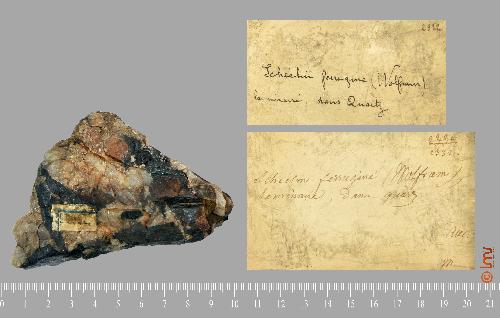 2332
Schéelin ferrugine (Wolfram)
laminaire dans Quartz
2332
schéelin ferruginé (Wolfram)
laminaire, dans quartz
0 1 2 3 4 5 6 7 8 9 10 11 12 13 14 15 16 17 18 19 20 21
© lmv